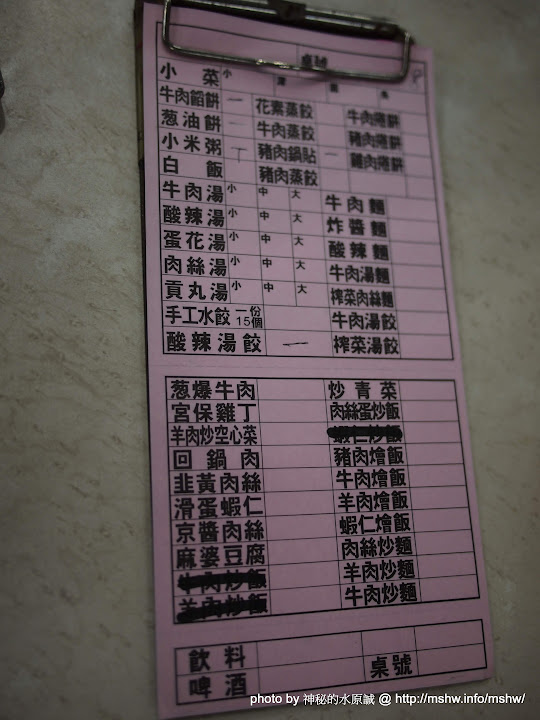 桌號
小菜 小
牛肉餡餅 一 花素蒸餃 牛肉捲餅
葱油餅 一 牛肉蒸餃 豬肉捲餅
小米粥 豬肉鍋貼 一 雞肉捲餅
白飯 豬肉蒸餃
牛肉湯 小 中 大 牛肉麵
酸辣湯 小 中 大 炸醬麵
蛋花湯 小 中 大 酸辣麵
肉絲湯 小 中 大 牛肉湯麵
貢丸湯 小 中 大 搾菜肉絲麵
手工水餃 一份15個 牛肉湯餃
酸辣湯餃 一 搾菜湯餃
葱爆牛肉 炒青菜
宮保雞丁 肉絲蛋炒飯
羊肉炒空心菜 蝦仁炒飯
回鍋肉 豬肉燴飯
韭黃肉絲 牛肉燴飯
滑蛋蝦仁 羊肉燴飯
京醬肉絲 蝦仁燴飯
麻婆豆腐 肉絲炒麵
牛肉炒飯 羊肉炒麵
羊肉炒飯 牛肉炒麵
飲料
啤酒 桌號
photo by 神秘的水原誠 @ http://mshw.info/mshw/